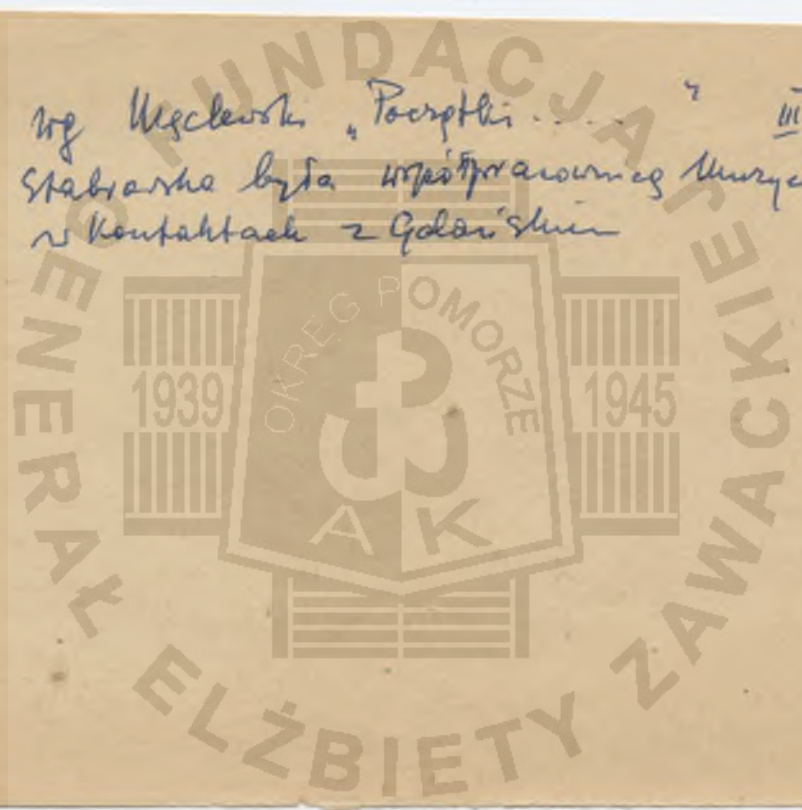 wg Męclewski „Początki ..... " III
Stabrowska była współpracownicą Muzyc
w kontaktach z Gdańskiem
FUNDACJA GENERAŁ ELŻBIETY ZAWACKIEJ
OKRĘG POMORZE
1939 1945
AK